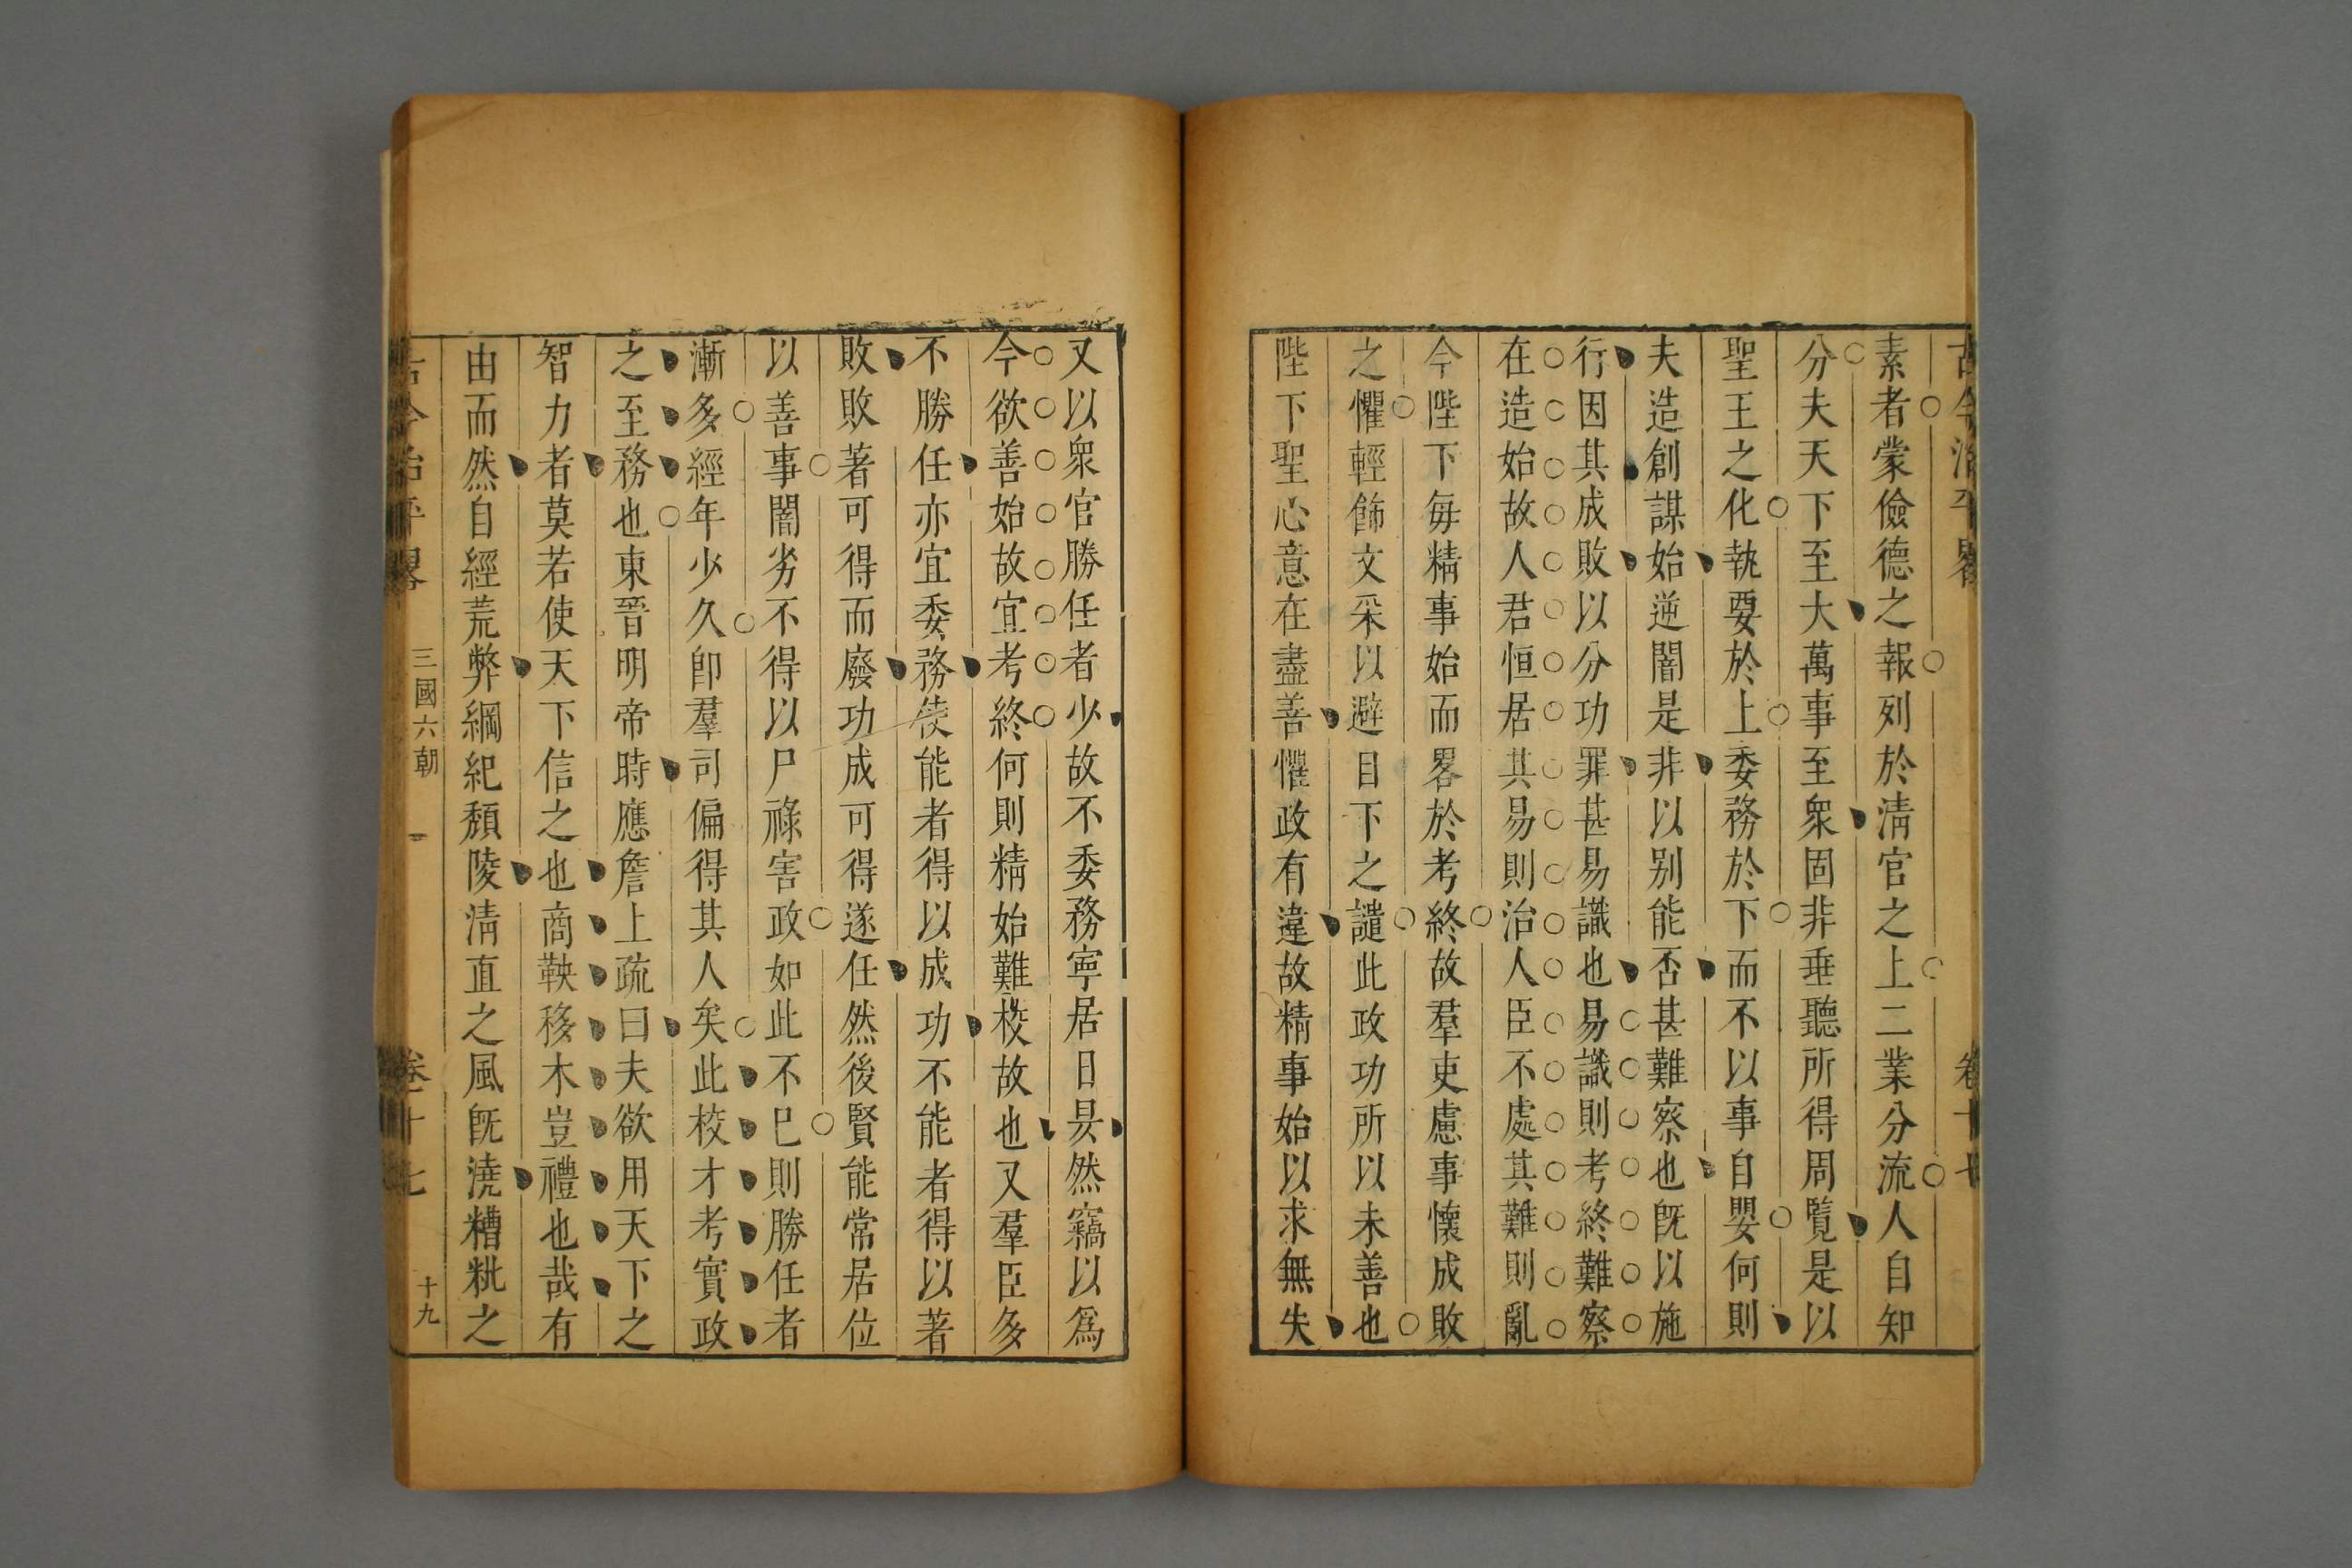 古今治平畧 卷十七
素者蒙儉德之報列於淸官之上二業分流人自知
分夫天下至大萬事至衆固非垂聽所得周覽是以
聖王之化執要於上委務於下而不以事自嬰何則
夫造創謀始逆闇是非以别能否甚難察也旣以施
行因其成敗以分功罪甚易識也易識則考終難察
在造始故人君恒居其易則治人臣不處其難則亂
今陛下每精事始而畧於考終故羣吏慮事懷成敗
之懼輕飾文采以避目下之譴此政功所以未善也
陛下聖心意在盡善懼政有違故精事始以求無失
又以衆官勝任者少故不委務寧居日昃然竊以爲
今欲善始故宜考終何則精始難校故也又羣臣多
不勝任亦宜委務使能者得以成功不能者得以著
敗敗著可得而廢功成可得遂任然後賢能常居位
以善事闇劣不得以尸祿害政如此不已則勝任者
漸多經年少久卽羣司偏得其人矣此校才考實政
之至務也東晉明帝時應詹上疏曰夫欲用天下之
智力者莫若使天下信之也商鞅移木豈禮也哉有
由而然自經荒弊綱紀頹陵淸直之風旣澆糟粃之
古今治平畧 三國六朝 卷十七 十九